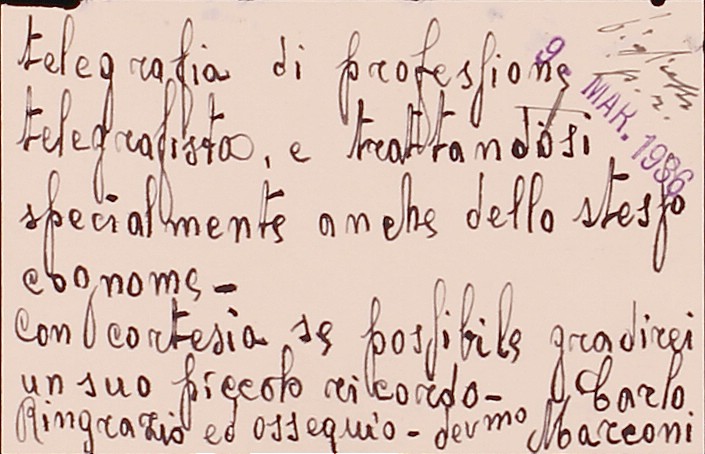 telegrafia di professione
telegrafista, e trattandosi
specialmente anche dello stesso
cognome -
con cortesia se possibile gradirei
un suo piccolo ricordo -
Ringrazio ed ossequio - devmo Carlo Marconi
9. MAR. 1936